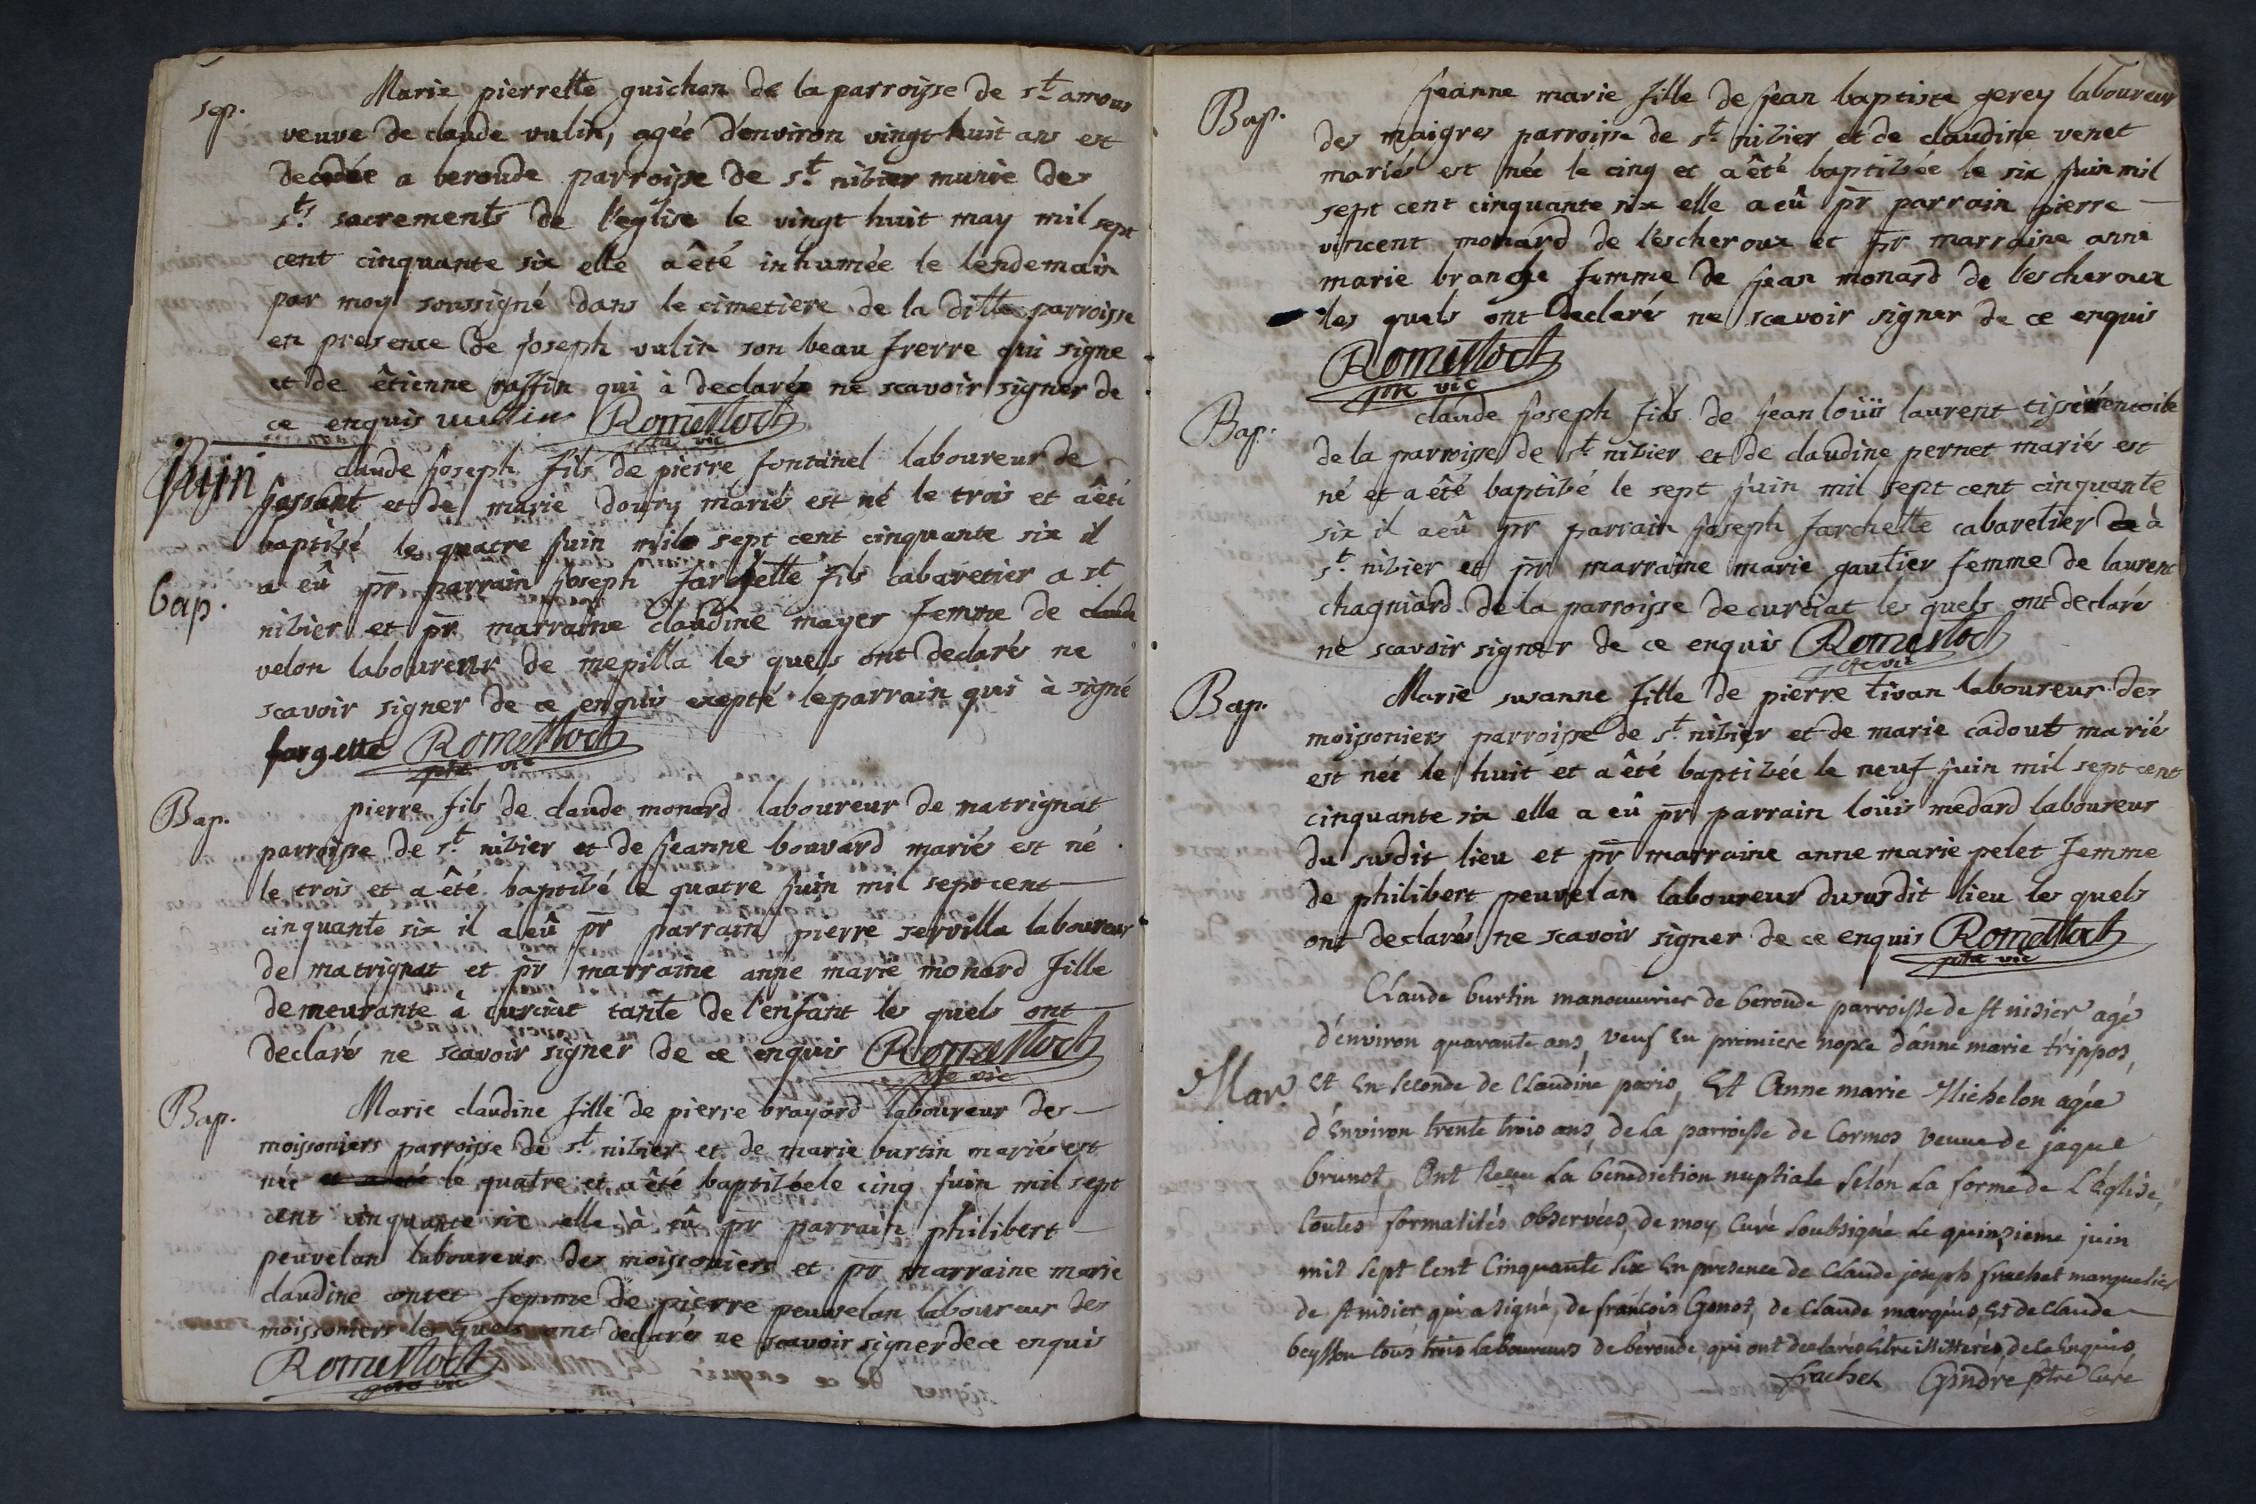 sep.
Marie pierrette guichon de la parroisse de st amour
veuve de claude vulin, agée d'environ vingt huit ans est
decedée a beroude parroisse de st nizier munie des
sts sacrements de l'église le vingt huit may mil sept
cent cinquante six elle a êté inhumée le lendemain
par moy soussigné dans le cimetiere de la ditte parroisse
en presence de joseph vulin son beau frerre qui signe
et de êtienne raffin qui à declarés ne scavoir signer de
ce enquis vullin Romestloch
ptre vic
Juin
Bap.
claude joseph fils de pierre fontanel laboureur de
fassant et de marie doury mariés est né le trois et a êté
baptisé le quatre juin mil sept cent cinquante six il
a eû pr parrain joseph fargette fils cabaretier a st
nizier et pr marraine claudine mayer femme de claude
velon laboureur de mepilla les quels ont declarés ne
scavoir signer de ce enquis exepté le parrain qui à signé
fargette Romestloch
ptre vic
Bap.
pierre fils de claude monard laboureur de matrignat
parroisse de st nizier et de jeanne bouvard mariés est né
le trois et a êté baptizé le quatre juin mil sept cent
cinquante six il a eû pr parrain pierre servilla laboureur
de matrignat et pr marraine anne marie monard fille
demeurante à curciat tante de l'enfant les quels ont
declarés ne scavoir signer de ce enquis Romestloch
ptre vic
Bap.
Marie claudine fille de pierre brayard laboureur des
moissoniers parroisse de st nizier et de marie burtin mariés est
née et a êté le quatre et a êté baptizée le cinq juin mil sept
cent cinquante six elle à eû pr parrain philibert
peuvelan laboureur des moissoniers et pr marraine marie
claudine contet femme de pierre peuvelan laboureur des
moissoniers les quels ont declarés ne scavoir signer de ce enquis
Romestloch
ptre vic
Bap.
jeanne marie fille de jean baptiste gerey laboureur
des maigres parroisse de st nizier et de claudine venet
mariés est née le cinq et a êté baptizée le six juin mil
sept cent cinquante six elle a eû pr parrain pierre
vincent monard de l'escheroux et pr marraine anne
marie branche femme de jean monard de lescheroux
les quels ont declarés ne scavoir signer de ce enquis
Romestloch
ptre vic
Bap.
claude joseph fils de jean loüis laurent tissier en toile
de la parroisse de st nizier et de claudine pernet mariés est
né et a êté baptizé le sept juin mil sept cent cinquante
six il a eû pr parrain joseph farchette cabaretier de à
st nizier et pr marraine marie gautier femme de laurent
chagniard de la parroisse de curciat les quels ont declarés
ne scavoir signer de ce enquis Romestloch
ptre vic
Bap.
Marie susanne fille de pierre tivan laboureur des
moissoniers parroisse de st nizier et de marie cadout mariés
est née le huit et a êté baptizée le neuf juin mil sept cent
cinquante six elle a eû pr parrain loüis medard laboureur
du susdit lieu et pr marraine anne marie pelet femme
de philibert peuvelan laboureur du susdit lieu les quels
ont declarés ne scavoir signer de ce enquis Romestloch
ptre vic
Mar.
Claude burtin manouvrier de beroude parroisse de st nisier agé
d'environ quarante ans, veuf En premiere nopce d'anne marie trippos,
Et En seconde de Claudine paris, Et Anne marie Michelon agée
d'Environ trente trois ans, de la parroisse de Cormos, veuve de jaque
brunot, Ont Receu La benediction nuptiale Selon La forme de L'Église,
toutes formalités observées, de moy Curé soubsigné Le quinzieme juin
mil Sept Cent Cinquante Six En presence de Claude joseph frachet marguelier
de st nisier, qui a signé, de françois Gonot, de Claude marquis, Et de Claude
beysson tous trois laboureurs de béroude, qui ont declarés Etre illitterés, de ce Enquis
frachet Gindre ptre Curé